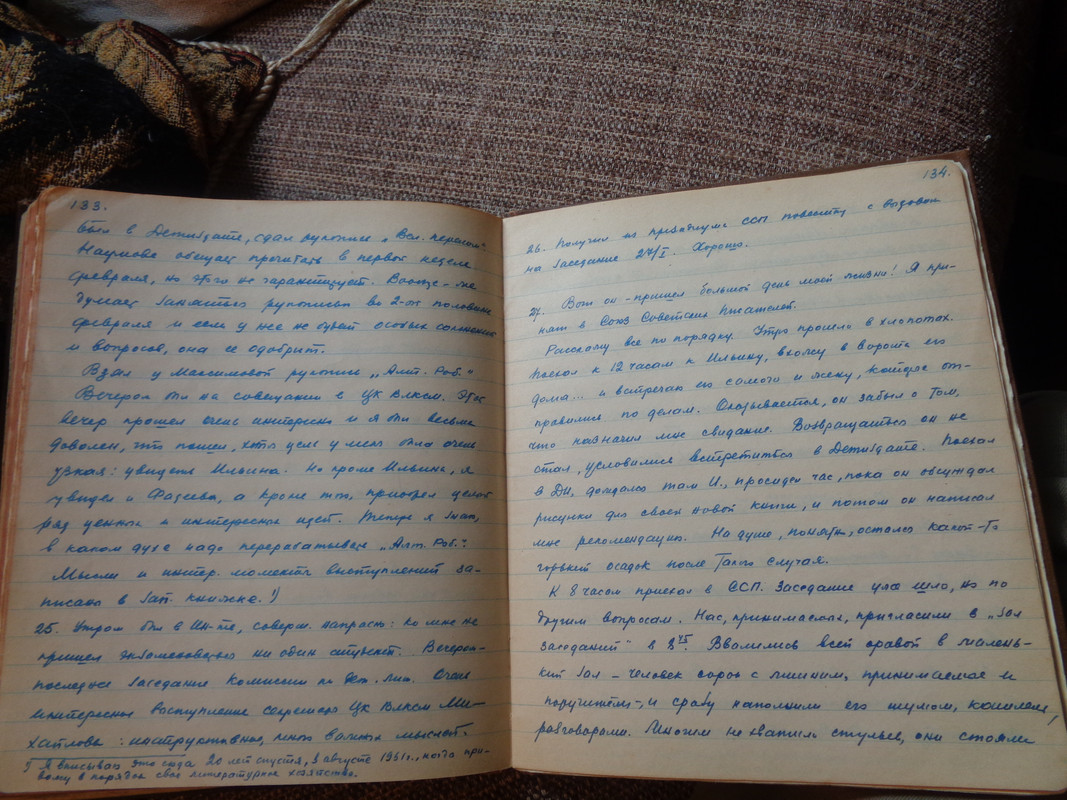 133.
был в Детиздате, сдал рукопись „Вол. перстень"
Наумова обещает прочитать в первой неделе
февраля, но этого не гарантирует. Воюцс-же
думает заняться рукописью во 2-ой половине
февраля и если у нее не будет особых сомнений
и вопросов, она ее одобрит.
Взял у Максимовой рукопись „Алт. Роб."
Вечером был на совещании в ЦК ВЛКСМ. Этот
вечер прошел очень интересно и я был весьма
доволен, что пошел, хотя цель у меня была очень
узкая: увидеть Ильина. Но кроме Ильина, я
увидел и Фадеева, а кроме того, приобрел целый
ряд ценных и интересных идей. Теперь я знаю,
в каком духе надо перерабатывать „Алт. Роб.".
Мысли и интер. моменты выступлений за-
писал в зап. книжке.¹)
25. Утром был в Ин-те, соверш. напрасно: ко мне не
пришел экзаменоваться ни один студент. Вечером-
последнее заседание Комиссии по дет. лит. Очень
интересное выступление секретаря ЦК ВЛКСМ Ми-
хайлова: инструктивное, много важных мыслей.
¹) Я вписываю это сюда 20 лет спустя, в августе 1961 г., когда при-
вожу в порядок свое литературное хозяйство.
134.
26. Получил из президиума ССП повестку с вызовом
на заседание 27/I. Хорошо.
27. Вот он - пришел большой день моей жизни! Я при-
нят в Союз Советских Писателей.
Расскажу все по порядку. Утро прошло в хлопотах.
Поехал к 12 часам к Ильину, вхожу в ворота его
дома... и встречаю его самого и жену, которые от-
правились по делам. Оказывается, он забыл о том,
что назначил мне свидание. Возвращаться он не
стал, условились встретиться в Детиздате. Поехал
в ДИ, дождался там И., просидел час, пока он обсуждал
рисунки для своей новой книги, и потом он написал
мне рекомендацию. На душе, понятно, остался какой-то
горький осадок после такого случая.
К 8 часам приехал в ССП. Заседание уже шло, но по
другим вопросам. Нас, принимаемых, пригласили в „зал
заседаний" в 8⁴⁵. Ввалились всей оравой в малень-
кий зал – человек сорок с лишним, принимаемые и
поручители-, и сразу наполнили его шумом, кашлем,
разговорами. Многим не хватило стульев, они стояли